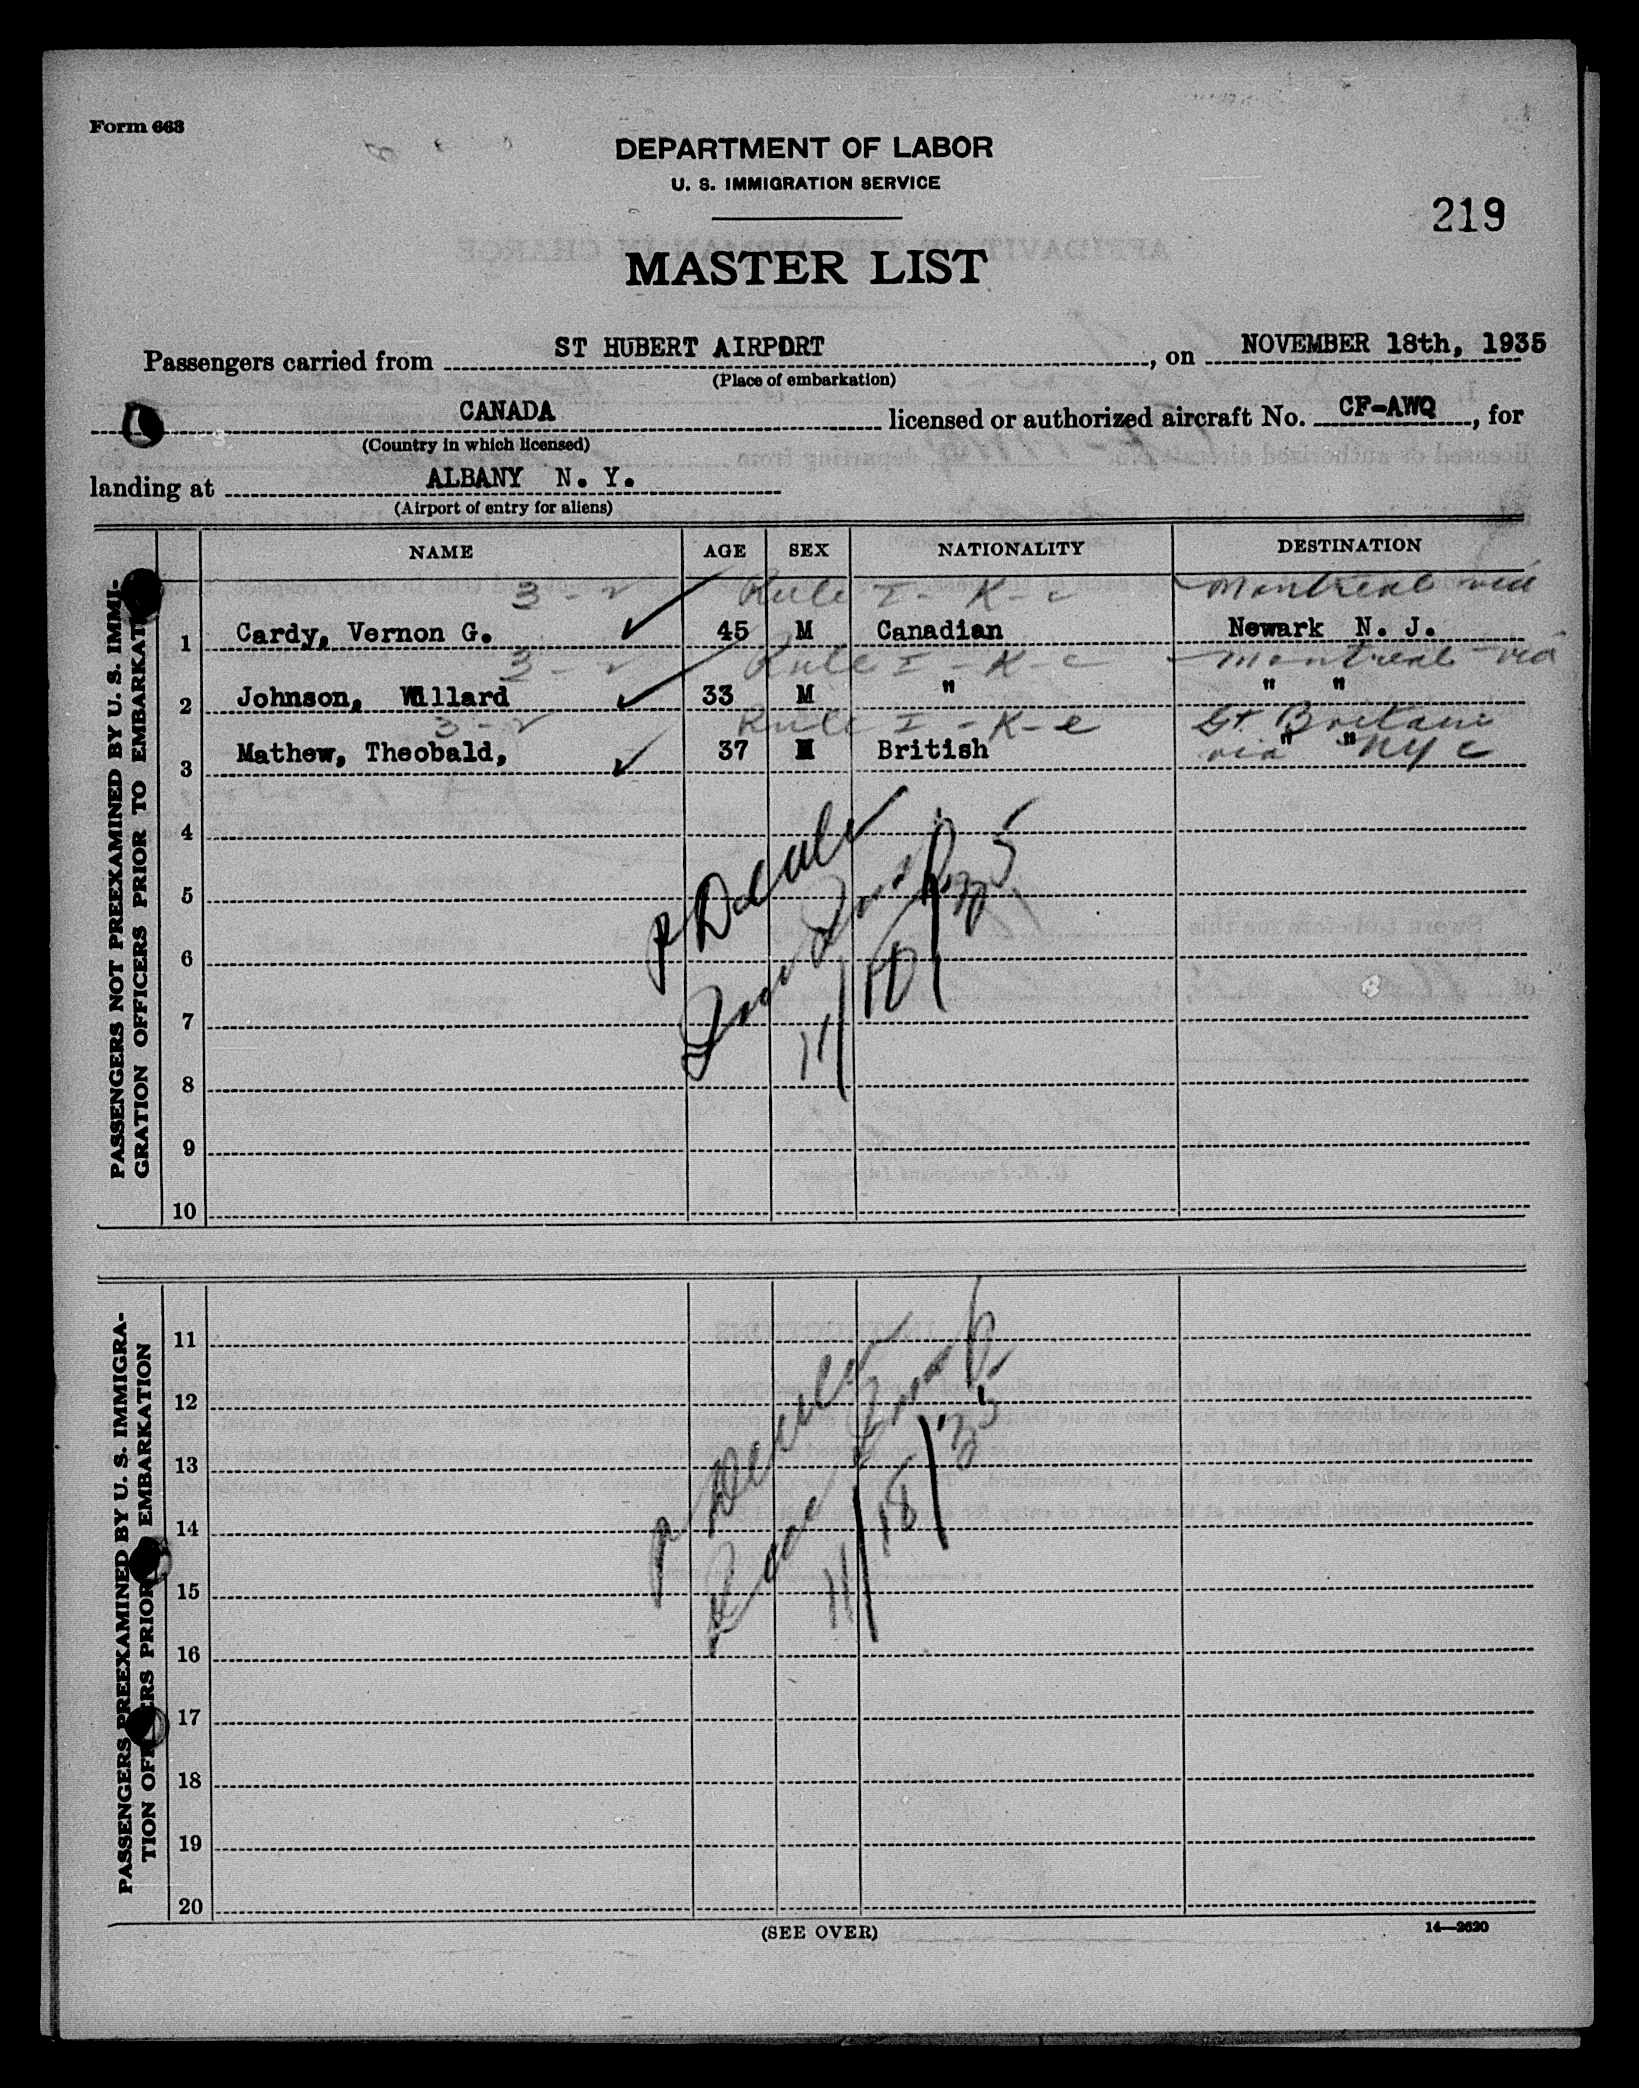 Form 663
DEPARTMENT OF LABOR
U. S. IMMIGRATION SERVICE
219
MASTER LIST
Passengers carried from ST HUBERT AIRPORT, on NOVEMBER 18th, 1935
(Place of embarkation)
CANADA licensed or authorized aircraft No. CF-AWQ, for
(Country in which licensed)
landing at ALBANY N. Y.
(Airport of entry for aliens)
NAME AGE SEX NATIONALITY DESTINATION
PASSENGERS NOT PREEXAMINED BY U. S. IMMI-
GRATION OFFICERS PRIOR TO EMBARKAT
3 - 2 Rule I - K - c Montreal via
1 Cardy, Vernon G. 45 M Canadian Newark N. J.
3 - 2 Rule I - K - c Montreal via
2 Johnson, Willard 33 M " " "
3 - 2 Rule I - K - e Gt Britain
3 Mathew, Theobald, 37 M British " "
via NYC
4
5
6
7
8
9
10
11/18/35
PASSENGERS PREEXAMINED BY U. S. IMMIGRA-
TION OFFICERS PRIOR EMBARKATION
11
12
13
14
15
16
17
18
19
20
11/18/35
(SEE OVER)
14—2620